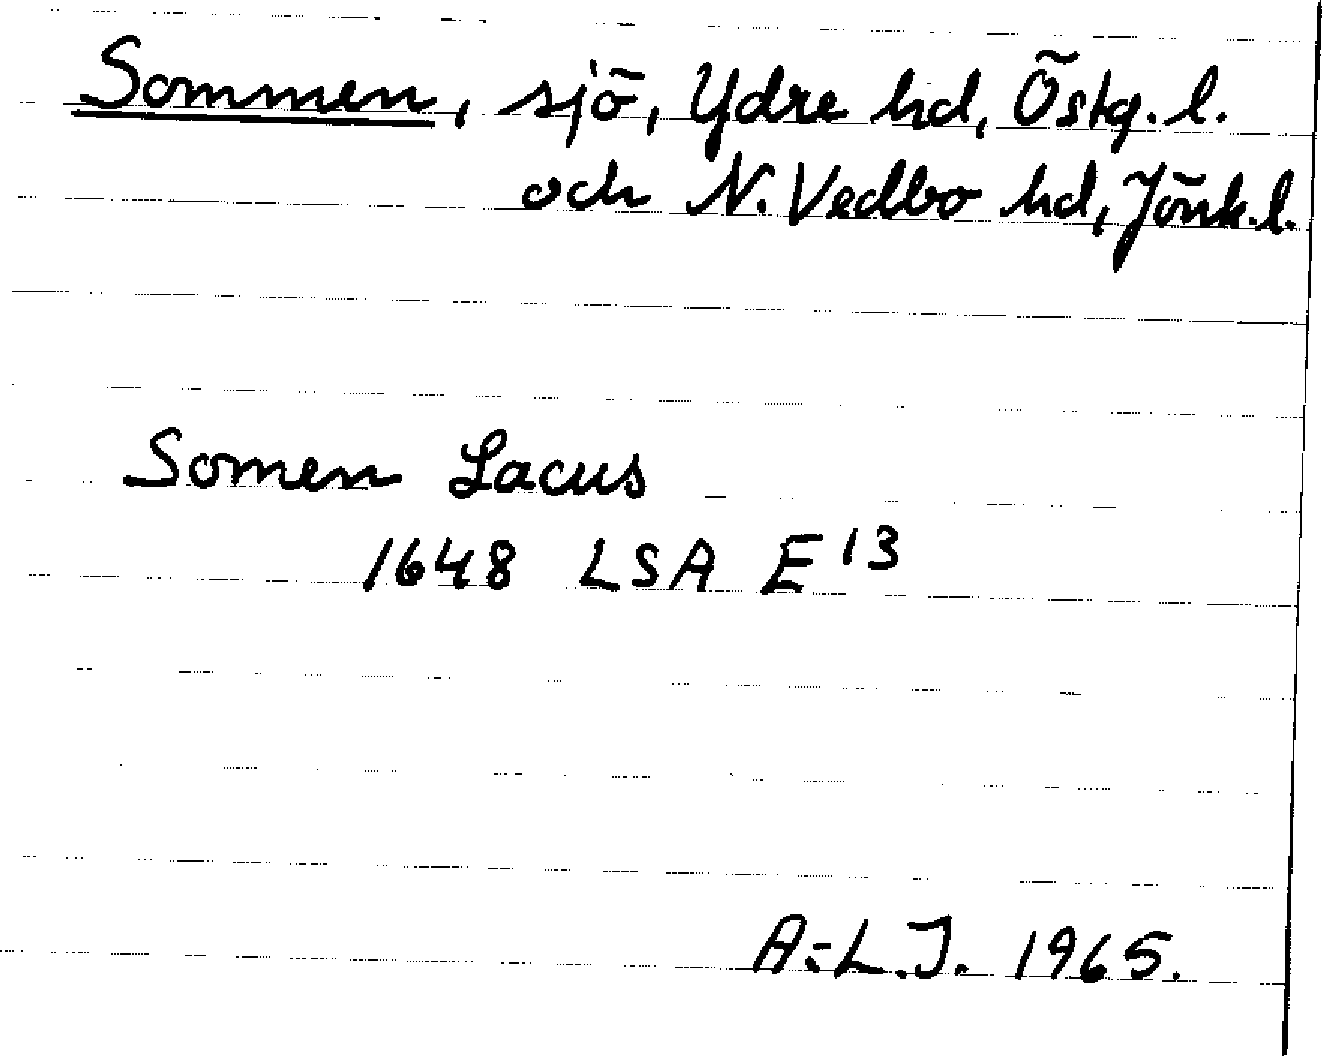 Sommen, sjö, Ydre hd, Östg. l.
och N. Vedbo hd, Jönk. l.
Somen Lacus
1648 LSA E 13
A-L.J. 1965.